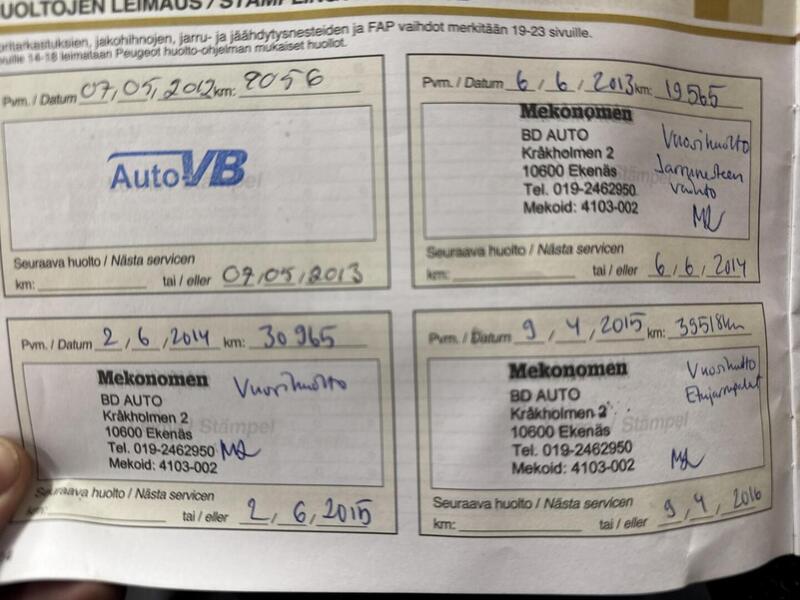 UOLTOJEN LEIMAUS /
oritarkastuksien, jakohihnojen, jarru- ja jäähdytysnesteiden ja FAP vaihdot merkitään 19-23 sivuille.
vuille 14-18 leimataan Peugeot huolto-ohjelman mukaiset huollot.
Pvm. / Datum 07,05,2012 km: 9056
AutoVB
Seuraava huolto / Nästa servicen
km: tai / eller 07,05,2013
Pvm. / Datum 6,6,2013 km: 19565
Mekonomen
BD AUTO
Kråkholmen 2
10600 Ekenäs
Tel. 019-2462950
Mekoid: 4103-002
Vuosihuolto
Jarrunesteen
vaihto
Seuraava huolto / Nästa servicen
km: tai / eller 6,6,2014
Pvm. / Datum 2,6,2014 km: 30965
Mekonomen
BD AUTO
Kråkholmen 2
10600 Ekenäs
Tel. 019-2462950
Mekoid: 4103-002
Vuosihuolto
Stämpel
Seuraava huolto / Nästa servicen
km: tai / eller 2,6,2015
Pvm. / Datum 9,4,2015 km: 39518km
Mekonomen
BD AUTO
Kråkholmen 2
10600 Ekenäs
Tel. 019-2462950
Mekoid: 4103-002
Vuosihuolto
Etujarrupalat
Stämpel
Seuraava huolto / Nästa servicen
km: tai / eller 9,4,2016